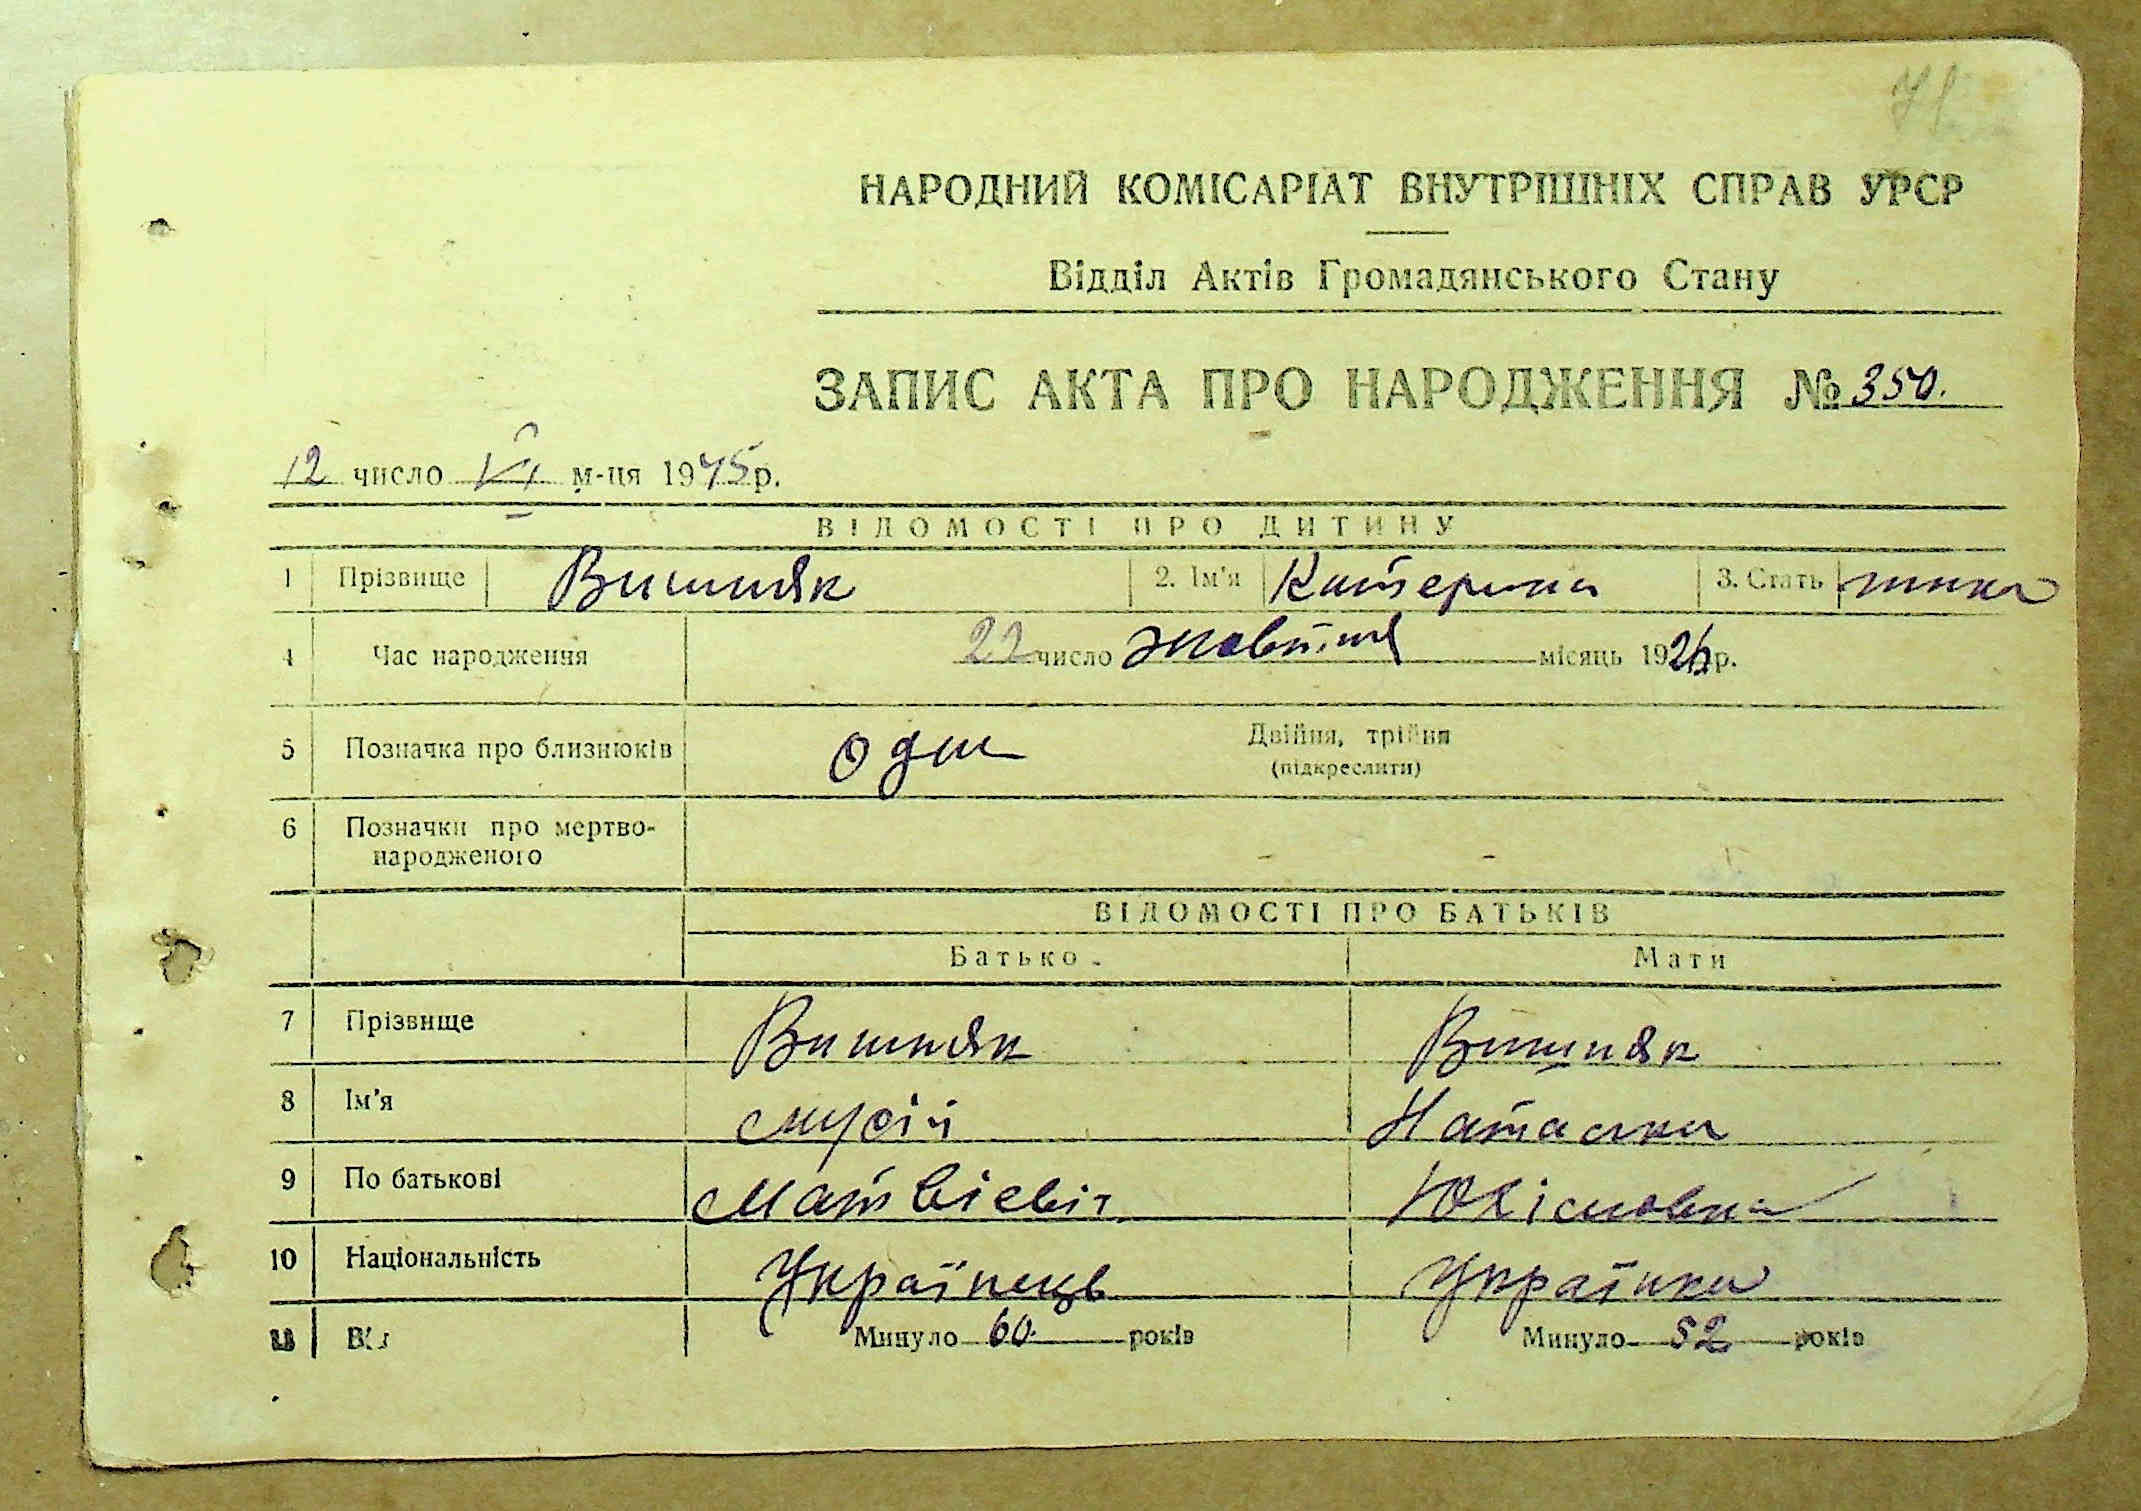 НАРОДНИЙ КОМІСАРІАТ ВНУТРІШНІХ СПРАВ УРСР
Відділ Актів Громадянського Стану
ЗАПИС АКТА ПРО НАРОДЖЕННЯ № 350.
12 число VI м-ця 1945 р.
ВІДОМОСТІ ПРО ДИТИНУ
1 Прізвище Вишняк 2. Ім'я Катерина 3. Стать жінка
4 Час народження 22 число жовтня місяць 192 р.
5 Позначка про близнюків один Двійня, трійня
(підкреслити)
6 Позначки про мертво-
народженого
ВІДОМОСТІ ПРО БАТЬКІВ
Батько Мати
7 Прізвище Вишняк Вишняк
8 Ім'я Мусій Наталка
9 По батькові Матвієвіч
10 Національність Українець Українка
11 Вік Минуло 60 років Минуло 52 років